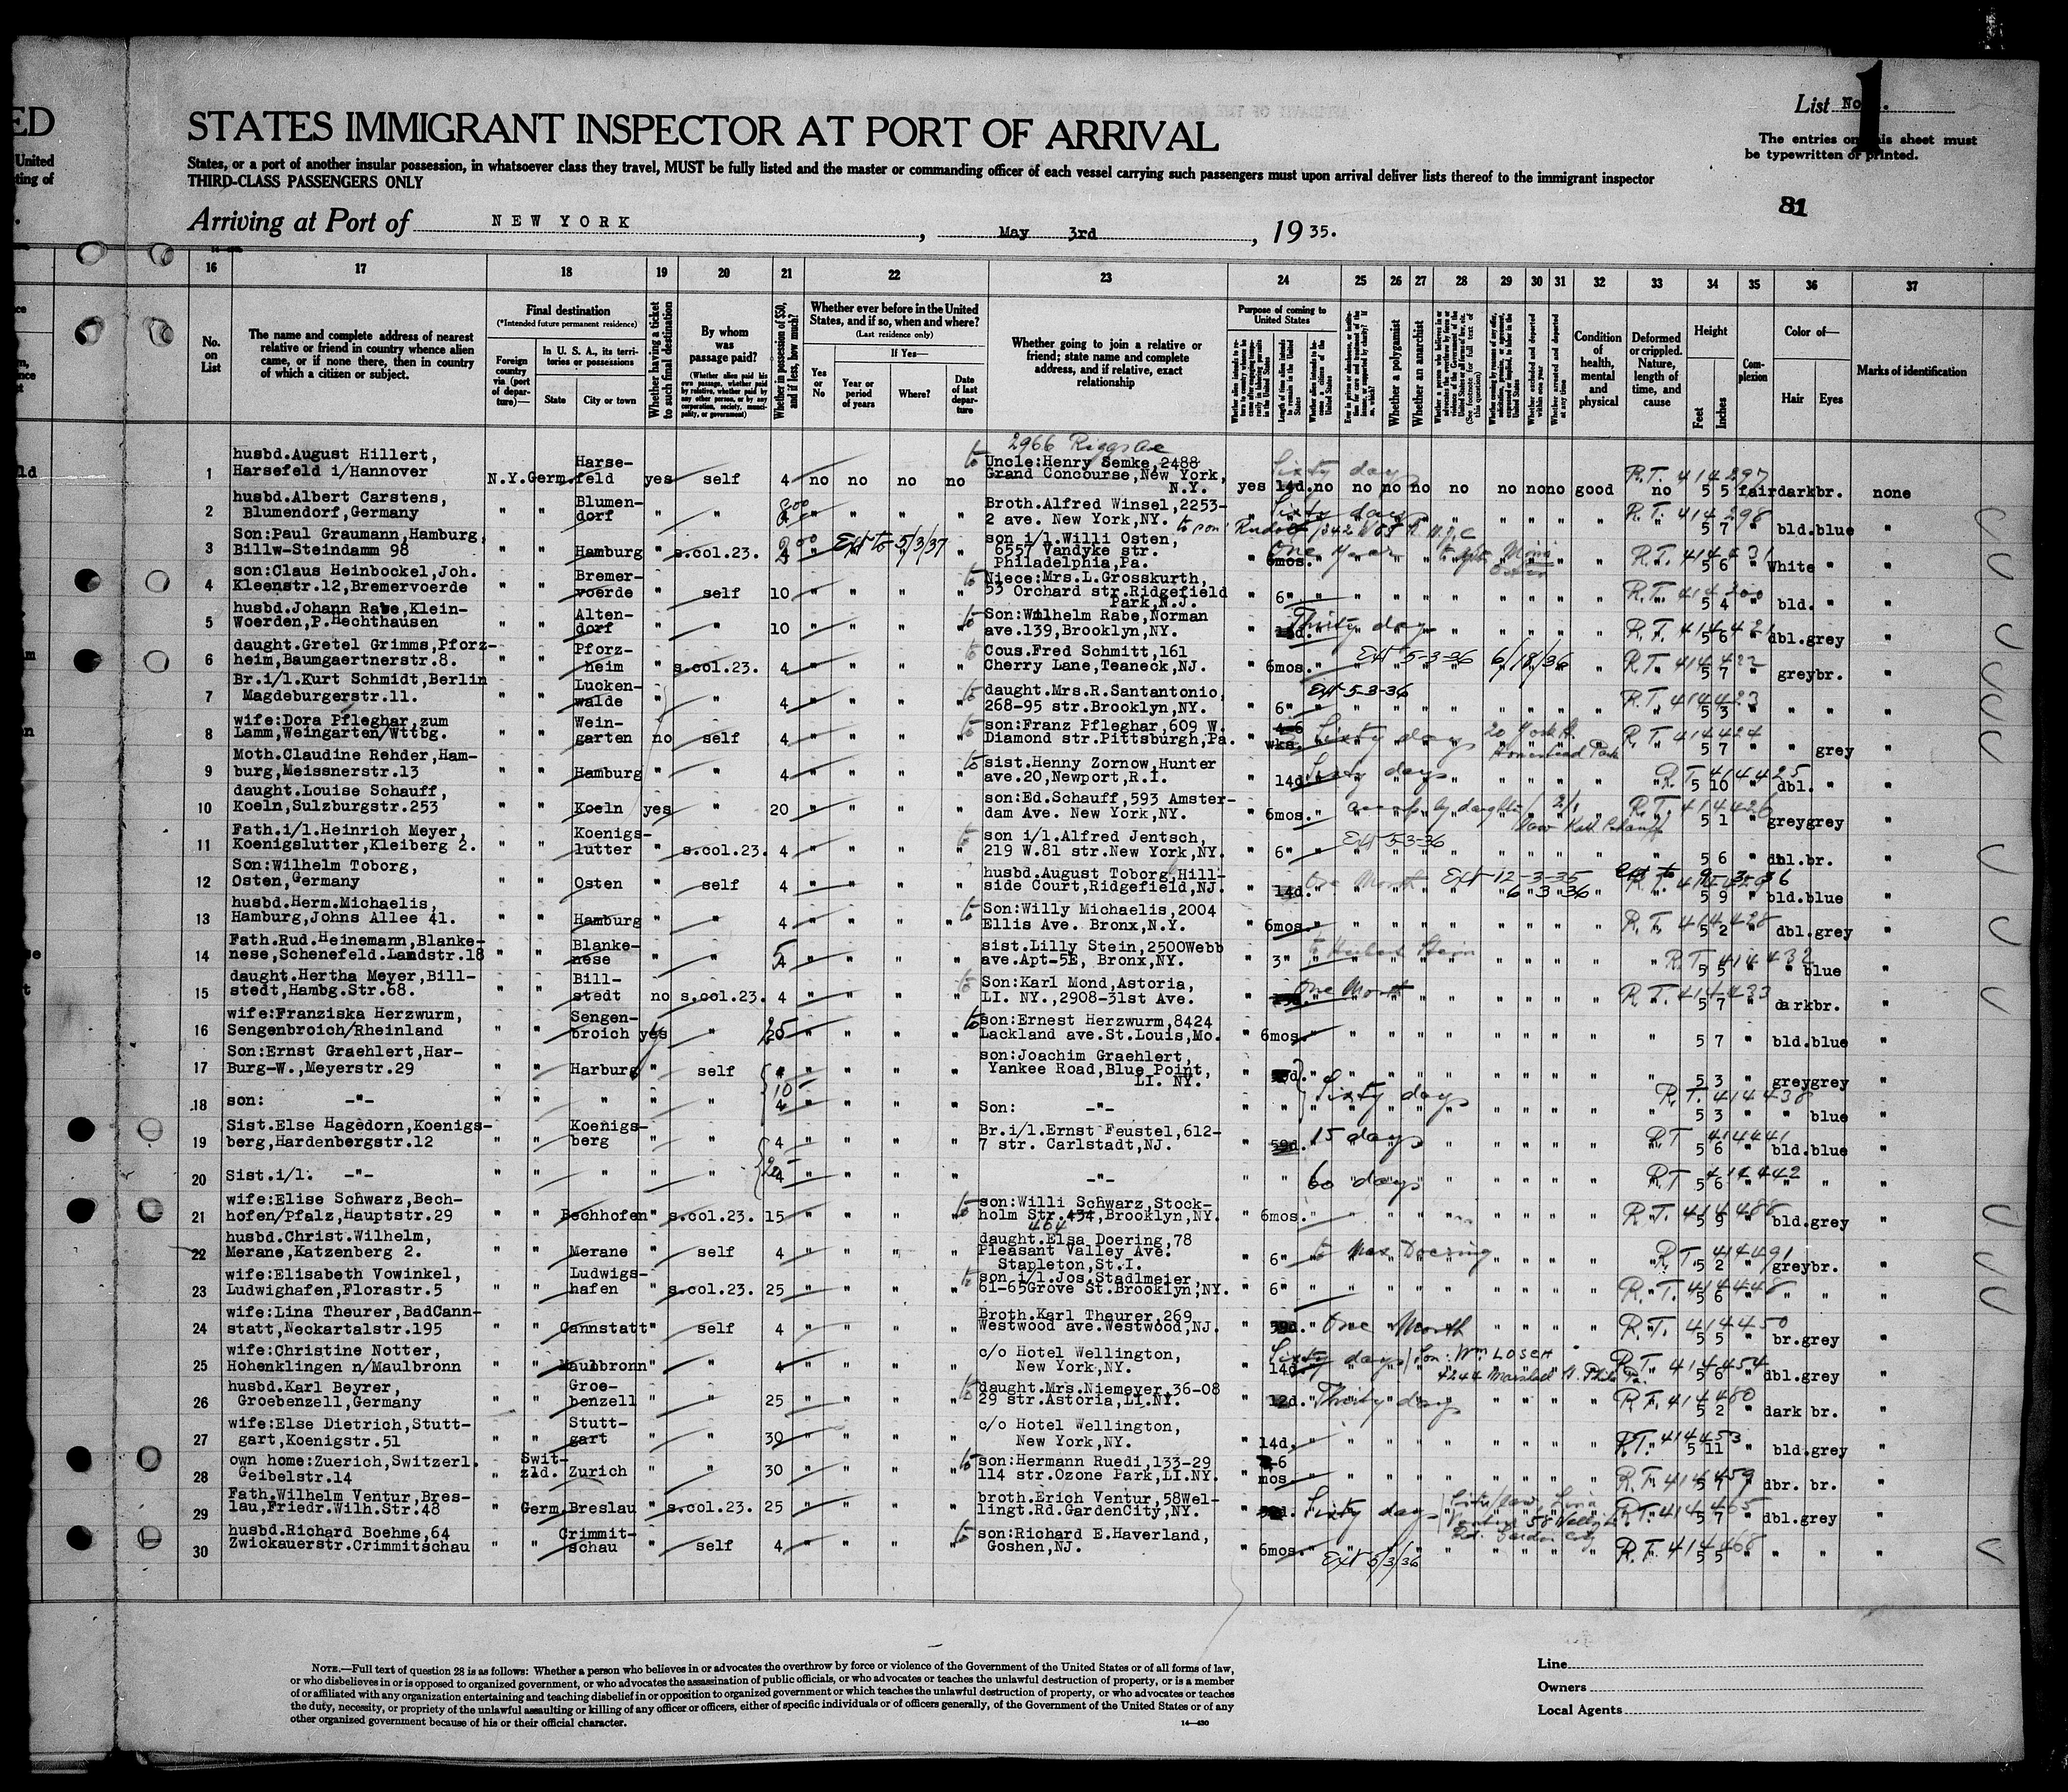 ED
STATES IMMIGRANT INSPECTOR AT PORT OF ARRIVAL
List No. 1
The entries on this sheet must
be typewritten or printed.
United
ting of
States, or a port of another insular possession, in whatsoever class they travel, MUST be fully listed and the master or commanding officer of each vessel carrying such passengers must upon arrival deliver lists thereof to the immigrant inspector
THIRD-CLASS PASSENGERS ONLY
81
Arriving at Port of NEW YORK, May 3rd, 1935.
16 17 18 19 20 21 22 23 24 25 26 27 28 29 30 31 32 33 34 35 36 37
No. on List
The name and complete address of nearest relative or friend in country whence alien came, or if none there, then in country of which a citizen or subject.
Final destination
(*Intended future permanent residence)
Foreign country via (port of departure)—
In U. S. A., its territories or possessions
State
City or town
Whether having a ticket to such final destination
By whom was passage paid?
(Whether alien paid his own passage, whether paid by relative, whether paid by any other person, or by any corporation, society, municipality, or government)
Whether in possession of $50, and if less, how much?
Whether ever before in the United States, and if so, when and where?
(Last residence only)
Yes or No
If Yes—
Year or period of years
Where?
Date of last departure
Whether going to join a relative or friend; state name and complete address, and if relative, exact relationship
Purpose of coming to United States
Length of time alien intends to remain in the United States
Whether a polygamist
Whether an anarchist
Condition of health, mental and physical
Deformed or crippled. Nature, length of time, and cause
Height
Feet
Inches
Complexion
Color of—
Hair
Eyes
Marks of identification
2966 Riggs Ave
1 husbd.August Hillert, Harsefeld i/Hannover N.Y. Germ. Harse-feld yes self 4 no no no no to Uncle:Henry Semke,2488 Grand Concourse,New York, N.Y. yes 14d. Sixty days no no no no no no no no good R.T. 414297 no 5 5 fair dark br. none
2 husbd.Albert Carstens, Blumendorf,Germany " " Blumen-dorf " " " " " " Broth.Alfred Winsel,2253-2 ave. New York,NY. " Sixty days R.T. 414298 5 7 " bld. blue "
3 Son:Paul Graumann,Hamburg, Billw-Steindamm 98 " " Hamburg " s.col.23. " Ext to 5/3/37 " son i/l.Willi Osten, 6557 Vandyke str. Philadelphia,Pa. " 6mos. One Year R.T. 414431 5 6 " White " "
4 son:Claus Heinbockel,Joh. Kleenstr.12,Bremervoerde " " Bremer-voerde " self 10 " " " " to Niece:Mrs.L.Grosskurth, 53 Orchard str.Ridgefield Park,N.J. " 6" R.T. 414300 5 4 " bld. " "
5 husbd.Johann Rabe,Klein-Woerden,P.Hechthausen " " Alten-dorf " " 10 " " " " to Son:Wilhelm Rabe,Norman ave.139,Brooklyn,NY. " Thirty days R.T. 414421 5 6 " dbl. grey "
6 daught.Gretel Grimms,Pforz-heim,Baumgaertnerstr.8. " " Pforz-heim " s.col.23. 4 " " " " to Cous.Fred Schmitt,161 Cherry Lane,Teaneck,NJ. " 6mos. Ext 5-3-36 6/18/36 R.T. 414422 5 7 " grey br. "
7 Br.i/l.Kurt Schmidt,Berlin Magdeburgerstr.11. " " Lucken-walde " " 4 " " " " to daught.Mrs.R.Santantonio, 268-95 str.Brooklyn,NY. " 6" Ext 5-3-36 R.T. 414423 5 3 " " " "
8 wife:Dora Pfleghar,zum Lamm,Weingarten/Wttbg. " " Wein-garten no self 4 " " " " to son:Franz Pfleghar,609 W. Diamond str.Pittsburgh,Pa. " 4-6 wks. Sixty days Homestead Park R.T. 414424 5 7 " " grey "
9 Moth.Claudine Rehder,Ham-burg,Meissnerstr.13 " " Hamburg " " 4 " " " " to sist.Henny Zornow,Hunter ave.20,Newport,R.I. " 14d. Sixty days R.T. 414425 5 10 " dbl. " "
10 daught.Louise Schauff, Koeln,Sulzburgstr.253 " " Koeln yes " 20 " " " " son:Ed.Schauff,593 Amster-dam Ave. New York,NY. " 6mos. R.T. 414426 5 1 " grey grey "
11 Fath.i/l.Heinrich Meyer, Koenigslutter,Kleiberg 2. " " Koenigs-lutter " s.col.23. 4 " " " " to son i/l.Alfred Jentsch, 219 W.81 str.New York,NY. " 6" Ext 5-3-36 5 6 " dbl. br. "
12 Son:Wilhelm Toborg, Osten,Germany " " Osten " self 4 " " " " husbd.August Toborg,Hill-side Court,Ridgefield,NJ. " 14d. One Month Ext 12-3-35 6 3 36 5 9 " bld. blue "
13 husbd.Herm.Michaelis, Hamburg,Johns Allee 41. " " Hamburg " " 4 " " " " to Son:Willy Michaelis,2004 Ellis Ave. Bronx,N.Y. " 6mos. R.T. 414428 5 2 " dbl. grey "
14 Fath.Rud.Heinemann,Blanke-nese,Schenefeld.Landstr.18 " " Blanke-nese " " 5 " " " " sist.Lilly Stein,2500Webb ave.Apt-5E, Bronx,NY. " 3" to Herbert Stein R.T. 414432 5 5 " " blue "
15 daught.Hertha Meyer,Bill-stedt,Hambg.Str.68. " " Bill-stedt no s.col.23. 4 " " " " to Son:Karl Mond,Astoria, LI. NY.,2908-31st Ave. " One Month R.T. 414433 5 7 " dark br. "
16 wife:Franziska Herzwurm, Sengenbroich/Rheinland " " Sengen-broich yes " 25 " " " " to son:Ernest Herzwurm,8424 Lackland ave.St.Louis,Mo. " 6mos. 5 7 " bld. blue "
17 Son:Ernst Graehlert,Har-Burg-W.,Meyerstr.29 " " Harburg " self " " " " son:Joachim Graehlert, Yankee Road,Blue Point, LI. NY. " 5 3 " grey grey "
18 son: -"- " " " " " 10 4 " " " " Son: -"- " " Sixty days R.T. 414438 5 3 " " blue "
19 Sist.Else Hagedorn,Koenigs-berg,Hardenbergstr.12 " " Koenigs-berg " " 4 " " " " Br.i/l.Ernst Feustel,612-7 str. Carlstadt,NJ. " 59d. 15 days RT 414441 5 6 " bld. blue "
20 Sist.i/l. -"- " " " " " 20 4 " " " " -"- " " 60 days RT 414442 5 6 " " " "
21 wife:Elise Schwarz,Bech-hofen/Pfalz,Hauptstr.29 " " Bechhofen " s.col.23. 15 " " " " to son:Willi Schwarz,Stock-holm Str.434,Brooklyn,NY. 464 " 6mos. R.T. 414488 5 9 " bld. grey "
22 husbd.Christ.Wilhelm, Merane,Katzenberg 2. " " Merane " self 4 " " " " daught.Elsa Doering,78 Pleasant Valley Ave. Stapleton,St.I. " 6" to Max Doering R.T. 414491 5 2 " grey br. "
23 wife:Elisabeth Vowinkel, Ludwighafen,Florastr.5 " " Ludwigs-hafen " s.col.23. 25 " " " " to son i/l.Jos.Stadlmeier, 61-65Grove St.Brooklyn,NY. " 6" R.T. 414448 5 6 " " " "
24 wife:Lina Theurer,BadCann-statt,Neckartalstr.195 " " Cannstatt " self 4 " " " " Broth.Karl Theurer,269 Westwood ave.Westwood,NJ. " 59d. One Month R.T. 414450 5 5 " br. grey "
25 wife:Christine Notter, Hohenklingen n/Maulbronn " " Maulbronn " " 4 " " " " c/o Hotel Wellington, New York,NY. " 14d. Sixty days Son: Wm LOSCH 4244 Marshall St. Phila Pa. R.T. 414454 5 6 " dbl. grey "
26 husbd.Karl Beyrer, Groebenzell,Germany " " Groe-benzell " " 25 " " " " to daught.Mrs.Niemeyer,36-08 29 str.Astoria,LI.NY. " 12d. Thirty days R.T. 414480 5 2 " dark br. "
27 wife:Else Dietrich,Stutt-gart,Koenigstr.51 " " Stutt-gart " " 30 " " " " c/o Hotel Wellington, New York,NY. " 14d. R.T. 414453 5 11 " bld. grey "
28 own home:Zuerich,Switzerl. Geibelstr.14 " Swit-zld. Zurich " " 30 " " " " to son:Hermann Ruedi,133-29 114 str.Ozone Park,LI.NY. " -6 mos R.T. 414459 5 7 " dbr. br. "
29 Fath.Wilhelm Ventur,Bres-lau,Friedr.Wilh.Str.48 " Germ. Breslau " s.col.23. 25 " " " " broth.Erich Ventur,58Wel-lingt.Rd.GardenCity,NY. " Sixty days R.T. 414465 5 7 " dbl. grey "
30 husbd.Richard Boehme,64 Zwickauerstr.Crimmitschau " " Crimmit-schau " self 4 " " " " to son:Richard E.Haverland, Goshen,NJ. " 6mos. Ext 5/3/36 R.T. 414468 5 5 " " " "
NOTE.—Full text of question 28 is as follows: Whether a person who believes in or advocates the overthrow by force or violence of the Government of the United States or of all forms of law,
or who disbelieves in or is opposed to organized government, or who advocates the assassination of public officials, or who advocates or teaches the unlawful destruction of property, or is a member
of or affiliated with any organization entertaining and teaching disbelief in or opposition to organized government or which teaches the unlawful destruction of property, or who advocates or teaches
the duty, necessity, or propriety of the unlawful assaulting or killing of any officer or officers, either of specific individuals or of officers generally, of the Government of the United States or of any
other organized government because of his or their official character.
14—430
Line
Owners
Local Agents